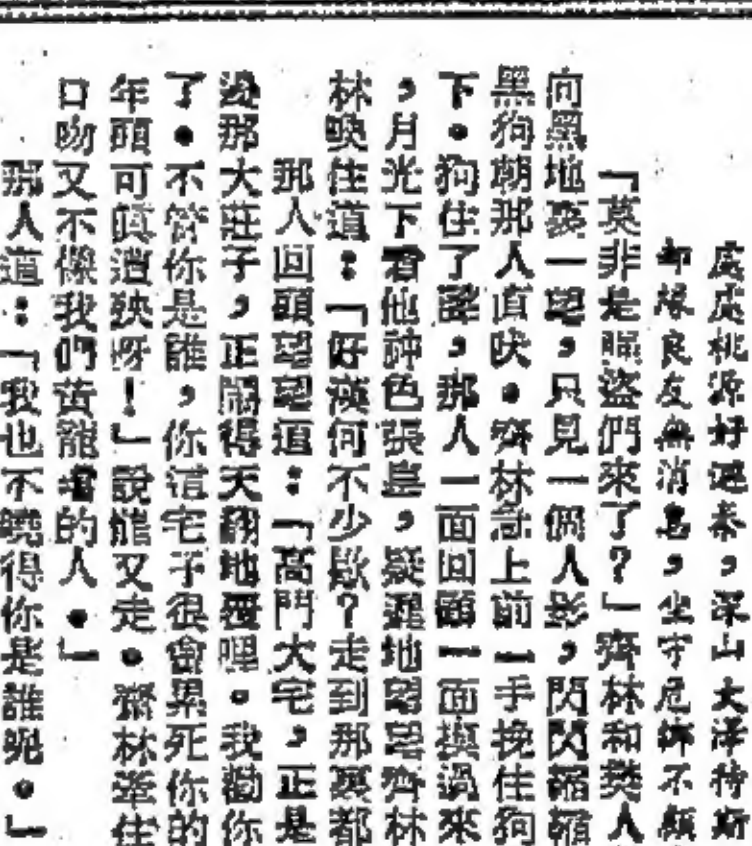 處處桃源好避秦，深山大澤特斯
却緣良友無消息，坐守危城不顧
「莫非是賊盜們來了？」齊林和樊人
向黑地裏一望，只見一個人影，閃閃縮縮
黑狗朝那人直吠。齊林急上前一手挽住狗
下。狗住了聲，那人一面回顧一面挨過來
，月光下看他神色張皇，疑遲地望望齊林
林喚住道：「好漢何不少歇？走到那裏都
那人回頭望望道：「高門大宅，正是
那大莊子，正鬧得天翻地覆哩。我勸你
了。不管你是誰，你這宅子很會累死你的
年頭可眞遭殃呀！」說罷又走。齊林牽住
口吻又不像我們黃龍的人。」
那人道：「我也不曉得你是誰呢。」